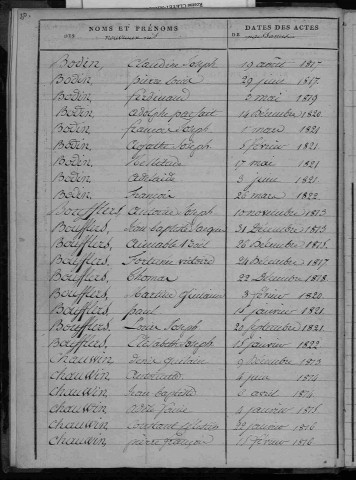 NOMS ET PRÉNOMS
DATES DES ACTES
DES
DE
Boden, Claudine Joseph 19 avril 1817
Boden, pierre Louis 29 juin 1817
Boden, ferdinand 5 mai 1819
Boden, adolphe parfait 14 décembre 1820
Boden, françois Joseph 1 mars 1821
Boden, agathe Joseph 5 février 1821
Boden, 17 mai 1821
Boden, adelaïde 3 juin 1821
Boden, françois 26 mars 1822
Boufflers, antoine Joseph 10 novembre 1813
Boufflers, Jean baptiste 31 Décembre 1813
Boufflers, aimable 26 Décembre 1815
Boufflers, fortunée victoire 24 Décembre 1817
Boufflers, thomas 22 Décembre 1818
Boufflers, 3 février 1820
Boufflers, paul 15 janvier 1821
Boufflers, Louis Joseph 20 septembre 1821
Boufflers, Elisabeth Joseph 15 janvier 1822
Chauwin, 9 décembre 1873
Chauwin, 6 juin 1874
Chauwin, Jean baptiste 5 avril 1874
Chauwin, 4 janvier 1875
Chauwin, Constant 22 janvier 1876
Chauwin, pierre françois février 1876